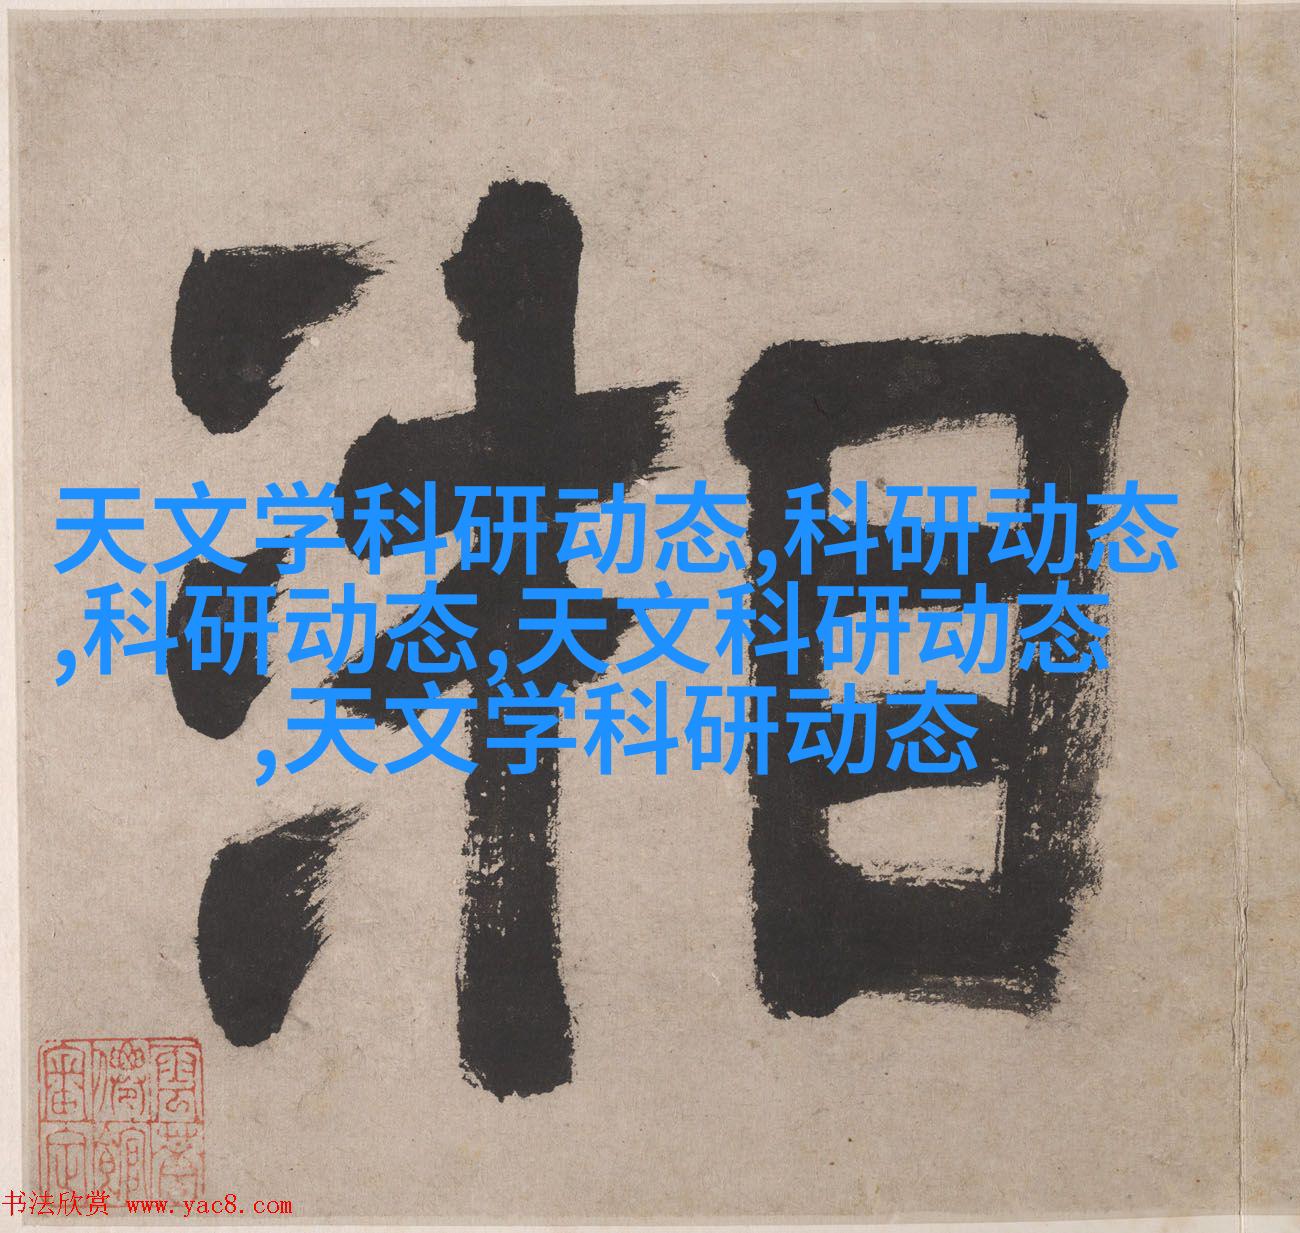 湘
天文学科研动态,科研动态
,科研动态,天文科研动态
,天文学科研动态
书法欣赏 www.yac8.com